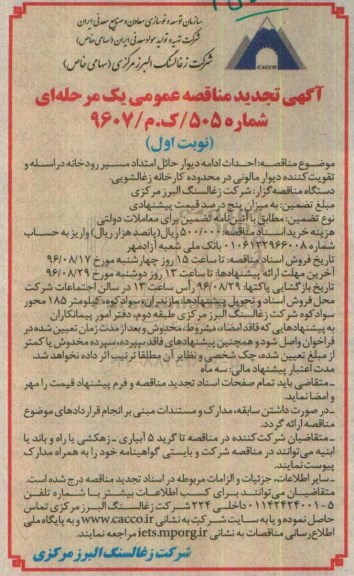 سازمان توسعه و نوسازی معادن و صنایع معدنی ایران
شرکت تهیه و تولید مواد معدنی ایران (سهامی خاص)
شرکت زغالسنگ البرز مرکزی (سهامی خاص)
CACCO
آگهی تجدید مناقصه عمومی یک مرحله‌ای
شماره ۵۰۵/ک.م/۹۶۰۷
(نوبت اول)
موضوع مناقصه: احداث ادامه دیوار حائل امتداد مسیر رودخانه دراسله و
تقویت کننده دیوار مالونی در محدوده کارخانه زغالشویی.
دستگاه مناقصه گزار: شرکت زغالسنگ البرز مرکزی
مبلغ تضمین: به میزان پنج درصد قیمت پیشنهادی
نوع تضمین: مطابق با آئین‌نامه تضمین برای معاملات دولتی
هزینه خرید اسناد مناقصه: ۵۰۰/۰۰۰ ریال (پانصد هزار ریال) واریز به حساب
شماره ۰۱۰۶۱۲۲۹۶۶۰۰۸ بانک ملی شعبه آزادمهر
تاریخ فروش اسناد مناقصه: تا ساعت ۱۵ روز چهارشنبه مورخ ۹۶/۰۸/۱۷
آخرین مهلت ارائه پیشنهادها: تا ساعت ۱۳ روز دوشنبه مورخ ۹۶/۰۸/۲۹
تاریخ بازگشایی پاکتها: ۹۶/۰۸/۲۹ رأس ساعت ۱۳ در سالن اجتماعات شرکت
محل فروش اسناد و تحویل پیشنهادها: مازندران، سوادکوه، کیلومتر ۱۸۵ محور
سوادکوه شرکت زغالسنگ البرز مرکزی طبقه دوم، دفتر امور پیمانکاران
به پیشنهادهایی که فاقد امضاء، مشروط، مخدوش و بعد از مدت زمان تعیین شده در
فراخوان واصل شود و همچنین پیشنهادهای فاقد سپرده، سپرده مخدوش یا کمتر
از مبلغ تعیین شده، چک شخصی و نظایر آن مطلقا ترتیب اثر داده نخواهد شد.
مدت اعتبار پیشنهاد مالی: سه ماه
ـ متقاضی باید تمام صفحات اسناد تجدید مناقصه و فرم پیشنهاد قیمت را مهر
و امضا نماید.
ـ در صورت داشتن سابقه، مدارک و مستندات مبنی بر انجام قراردادهای موضوع
مناقصه ارائه گردد.
ـ متقاضیان شرکت کننده در مناقصه تا گرید ۵ آبیاری ـ زهکشی یا راه و باند یا
ابنیه می‌توانند در مناقصه شرکت و بایستی گواهینامه خود را به همراه مدارک
پیوست نمایند.
ـ سایر اطلاعات، جزئیات و الزامات مربوطه در اسناد تجدید مناقصه درج شده است.
متقاضیان می‌توانند برای کسب اطلاعات بیشتر با شماره تلفن
۵-۰۱۱۴۲۴۲۴۰۰۱ داخلی ۲۲۴ شرکت زغالسنگ البرز مرکزی تماس
حاصل نموده و یا به سایت شرکت به نشانی www.cacco.ir و به پایگاه ملی
اطلاع‌رسانی مناقصات به نشانی iets.mporg.ir مراجعه نمایند.
شرکت زغالسنگ البرز مرکزی